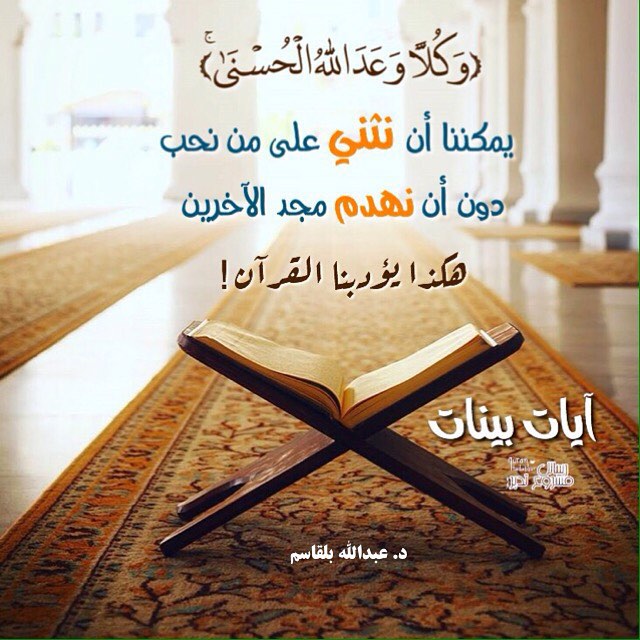 ﴿وَكُلًّا وَعَدَ اللَّهُ الْحُسْنَىٰ ۚ﴾
يمكننا أن نثني على من نحب
دون أن نهدم مجد الآخرين
هكذا يؤدبنا القرآن!
آيات بينات
د. عبدالله بلقاسم